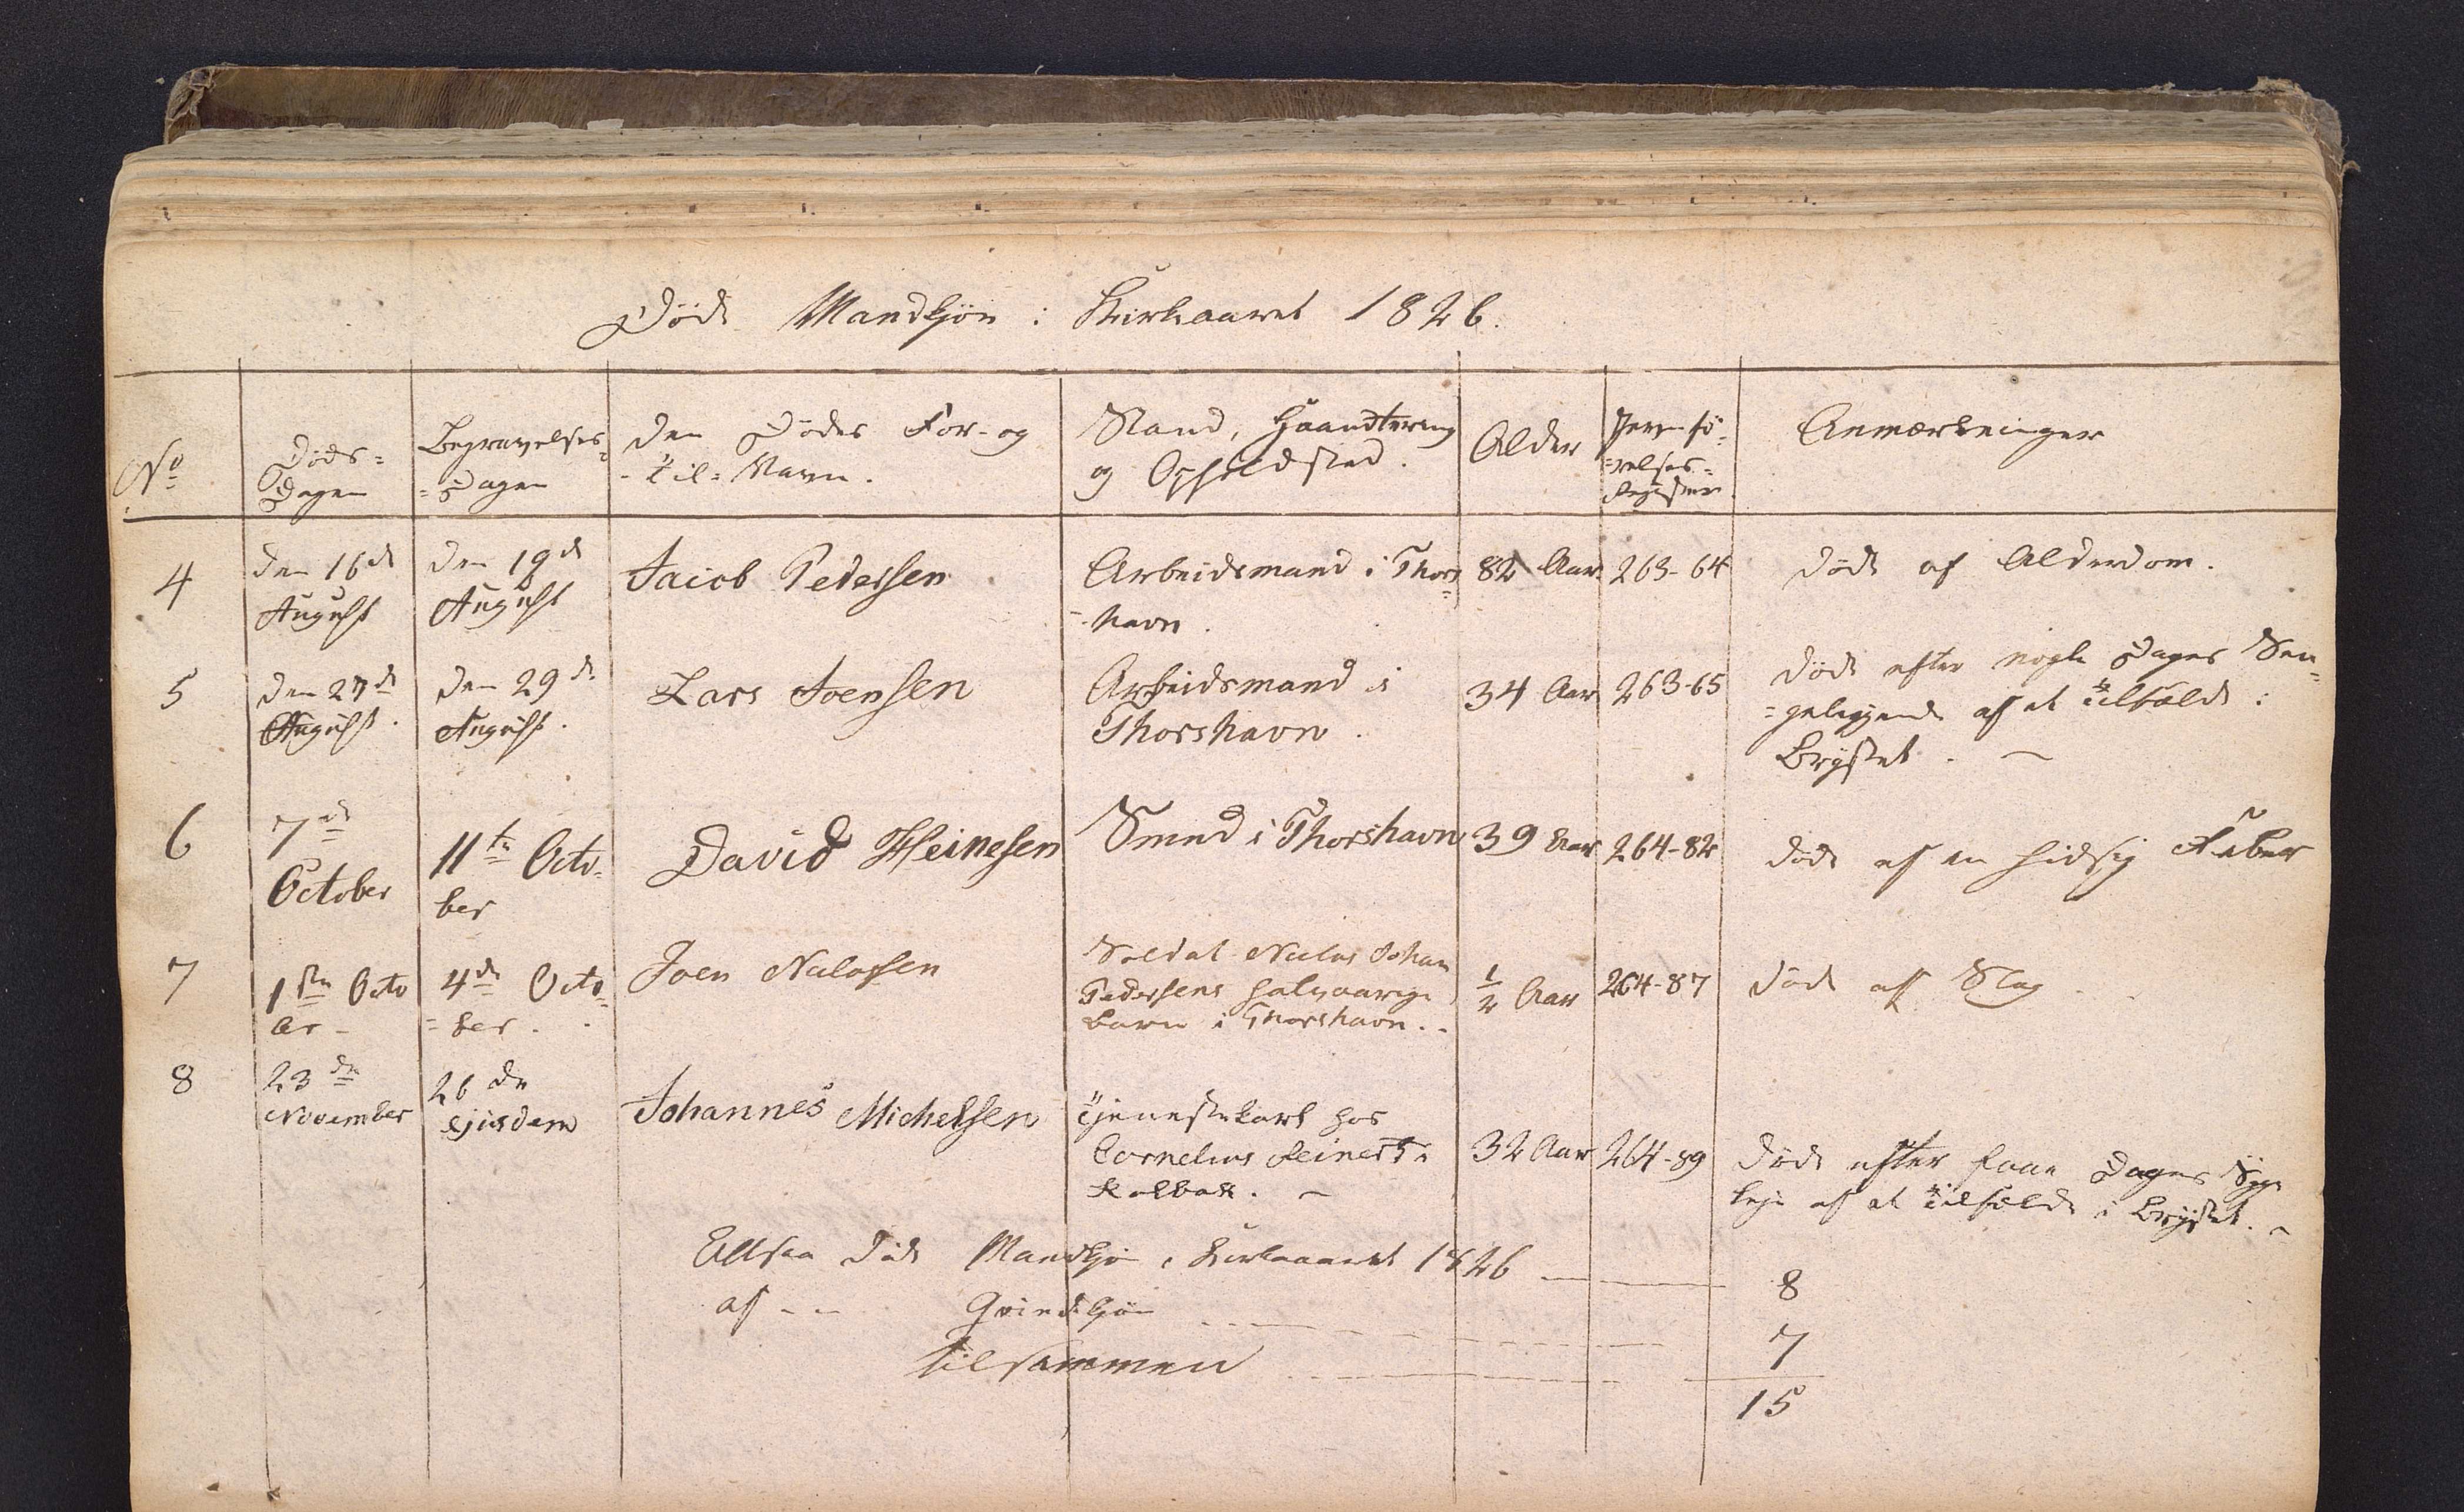 Døde Mandkjøn i Kirkeaaret 1826.
No
Døds=
Dagen
Begravelses=
=Dagen
Den Dødes For- og
-Til=Navn.
Stand, Haandtering
og Opholdsted.
Alder
Jevnfø=
=relses=
Register
Anmærkninger
4
den 16de
August
den 19de
August
Jacob Pedersen
Arbeidsmand i Thors
=havn.
82 Aar
263-64
døde af Alderdom.
5
den 27de
August.
den 29de
August.
Lars Joensen
Arbeidsmand i
Thorshavn.
34 Aar
263-65
døde efter nogle Dages Sen=
=geliggende af et Tilfælde i
Brÿstet.
6
7de
October
11te Octo=
ber
David Heinesen
Smed i Thorshavn
39 Aar
264-82
døde af en hidsig Feber
7
1ste Octo
ber
4de Octo=
=ber.
Joen Nielasen
Soldat Nielas Johan
Pedersens halvaarige
barn i Thorshavn.
1/2 Aar
264-87
døde af Slag
8
23de
November
26de
ejusdem
Johannes Michelsen
Tjenestekarl hos
Cornelius Reinert i
Kolbak.
32 Aar
264-89
døde efter faae Dages Syge
leje af et Tilfælde i Brÿstet.
Altsaa døde Mandkjøn i Kirkeaaret 1826
8
af - - Qvindekjøn
7
tilsammen
15